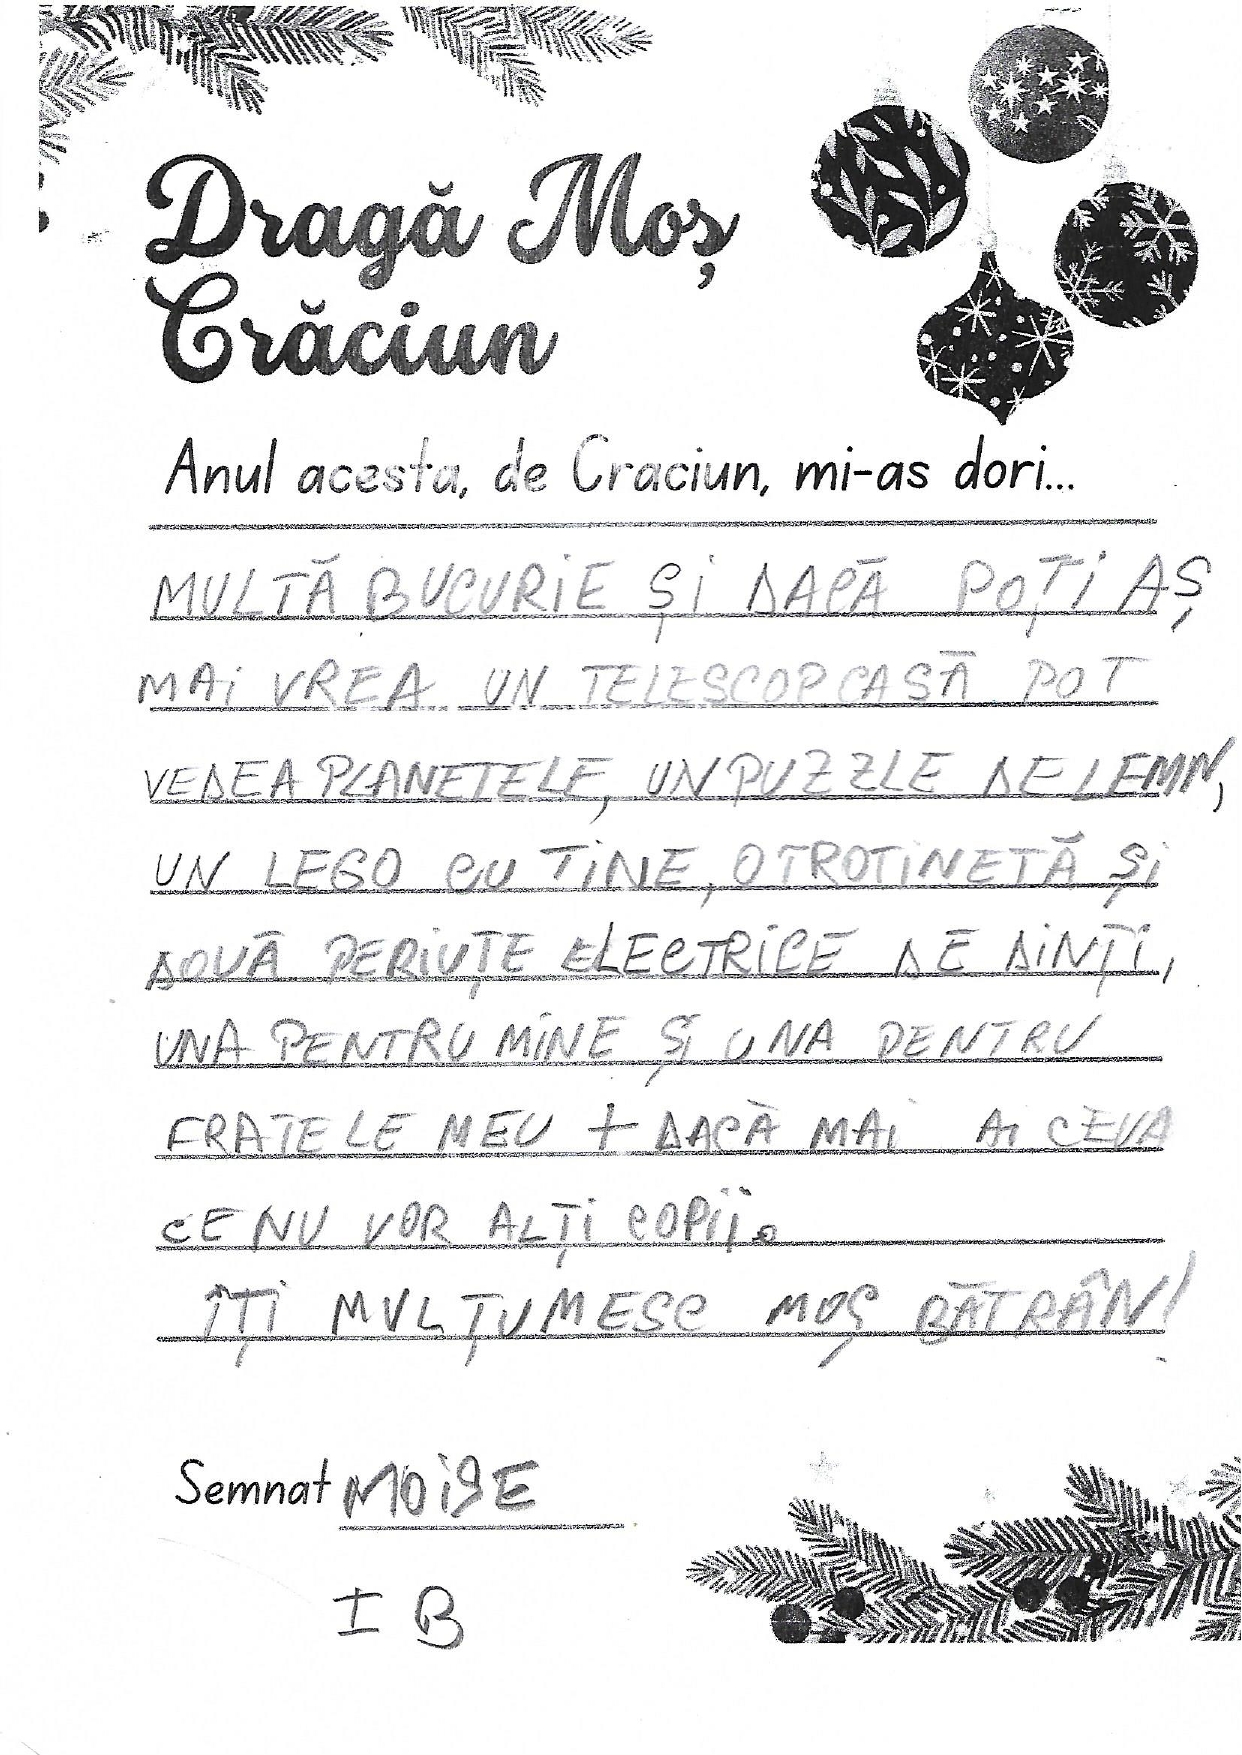 Dragă Moș
Crăciun
Anul acesta, de Craciun, mi-as dori...
MULTĂ BUCURIE ȘI DACĂ POȚI AȘ
MAI VREA UN TELESCOP CASĂ POT
VEDEA PLANETELE, UN PUZZLE DE LEMN,
UN LEGO CU TINE, O TROTINETĂ ȘI
DOUĂ PERIUȚE ELECTRICE DE DINȚI,
UNA PENTRU MINE ȘI UNA PENTRU
FRATELE MEU + DACĂ MAI AI CEVA
CE NU VOR ALȚI COPII.
ÎȚI MULȚUMESC MOȘ BĂTRÂN!
Semnat MOISE
I B